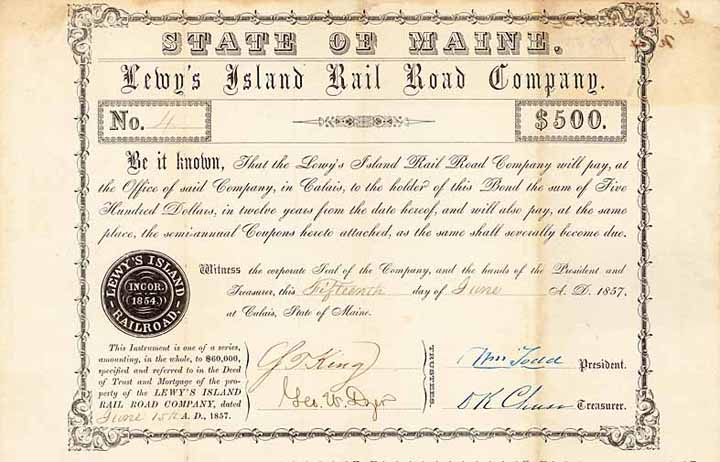 STATE OF MAINE.
Lewy's Island Rail Road Company.
No. 4
$500.
Be it known, That the Lewy's Island Rail Road Company will pay, at
the Office of said Company, in Calais, to the holder of this Bond the sum of Five
Hundred Dollars, in twelve years from the date hereof, and will also pay, at the same
place, the semi-annual Coupons hereto attached, as the same shall severally become due.
LEWY'S ISLAND
INCOR.
1854.
RAILROAD.
Witness the corporate Seal of the Company, and the hands of the President and
Treasurer, this Fifteenth day of June A. D. 1857.
at Calais, State of Maine.
This Instrument is one of a series,
amounting, in the whole, to $60,000,
specified and referred to in the Deed
of Trust and Mortgage of the pro-
perty of the LEWY'S ISLAND
RAIL ROAD COMPANY, dated
June 15th A. D., 1857.
King
Geo. W. Dyer
TRUSTEES
Wm Todd President.
Treasurer.